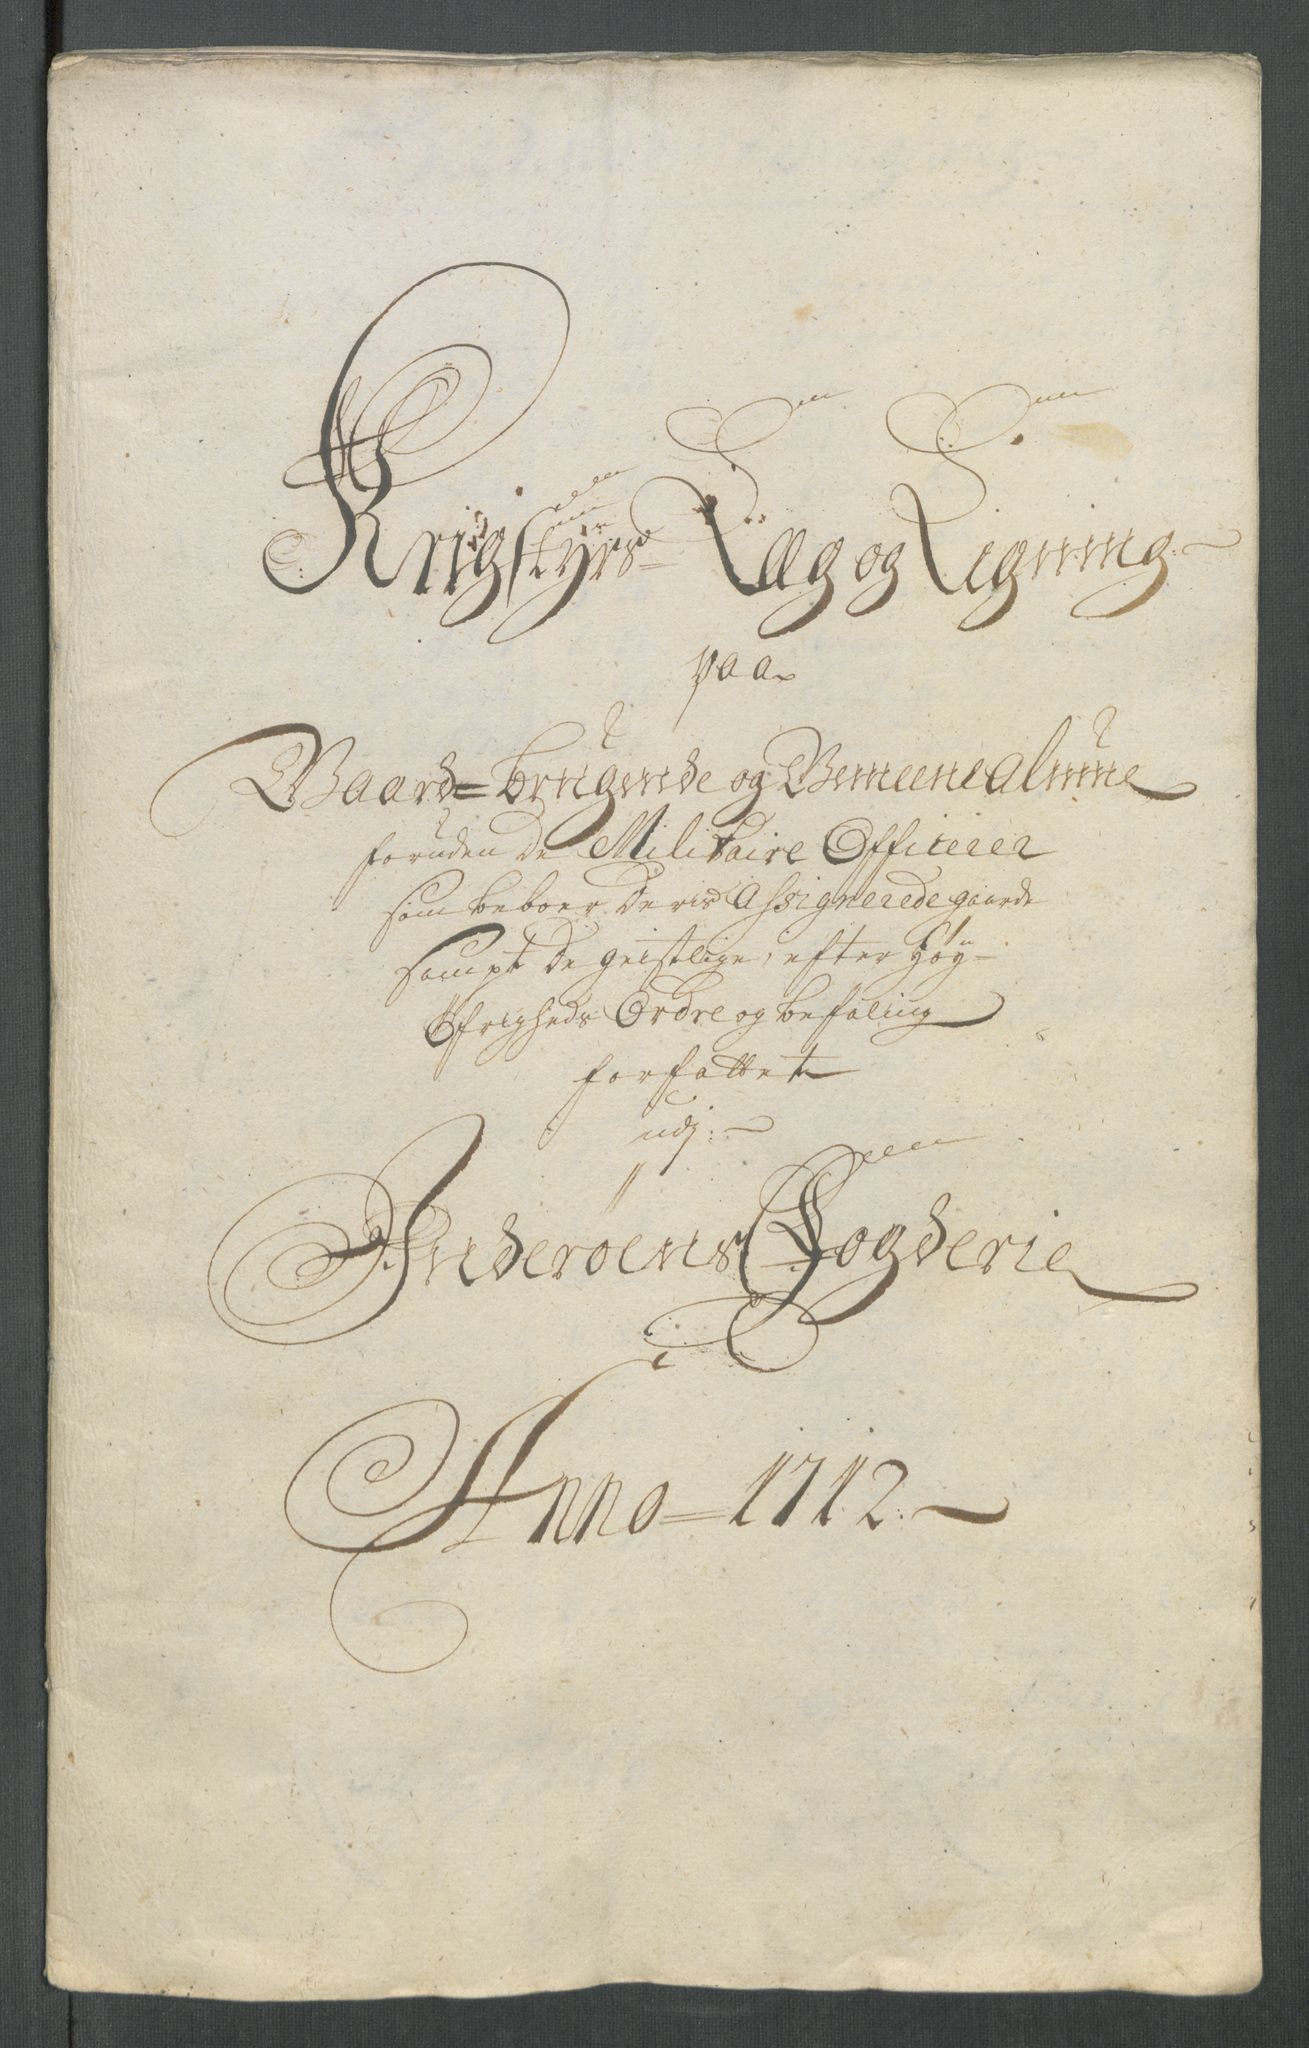 Krigstyrs= Læg og Ligning
paa
Gaard=brugende og Gemeene almue
foruden de Militaire Officerer
som beboer deris Assignerede gaarde
sampt de geistlige, efter høy-
Øfrigheds Ordre og befaling
forfattet
udj:
Inderøens Fogderie
Anno=1712.